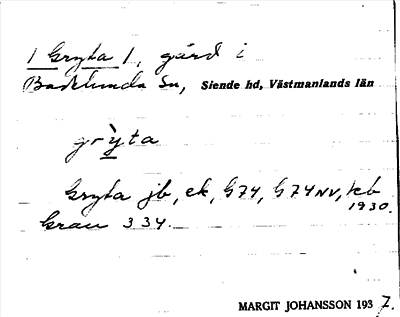 1 Gryta 1, gård i
Badelunda Sn, Siende hd, Västmanlands län
grỳta
Gryta jb, ek, G74, G74NV, kb
1930.
Grau 334.
MARGIT JOHANSSON 1937.